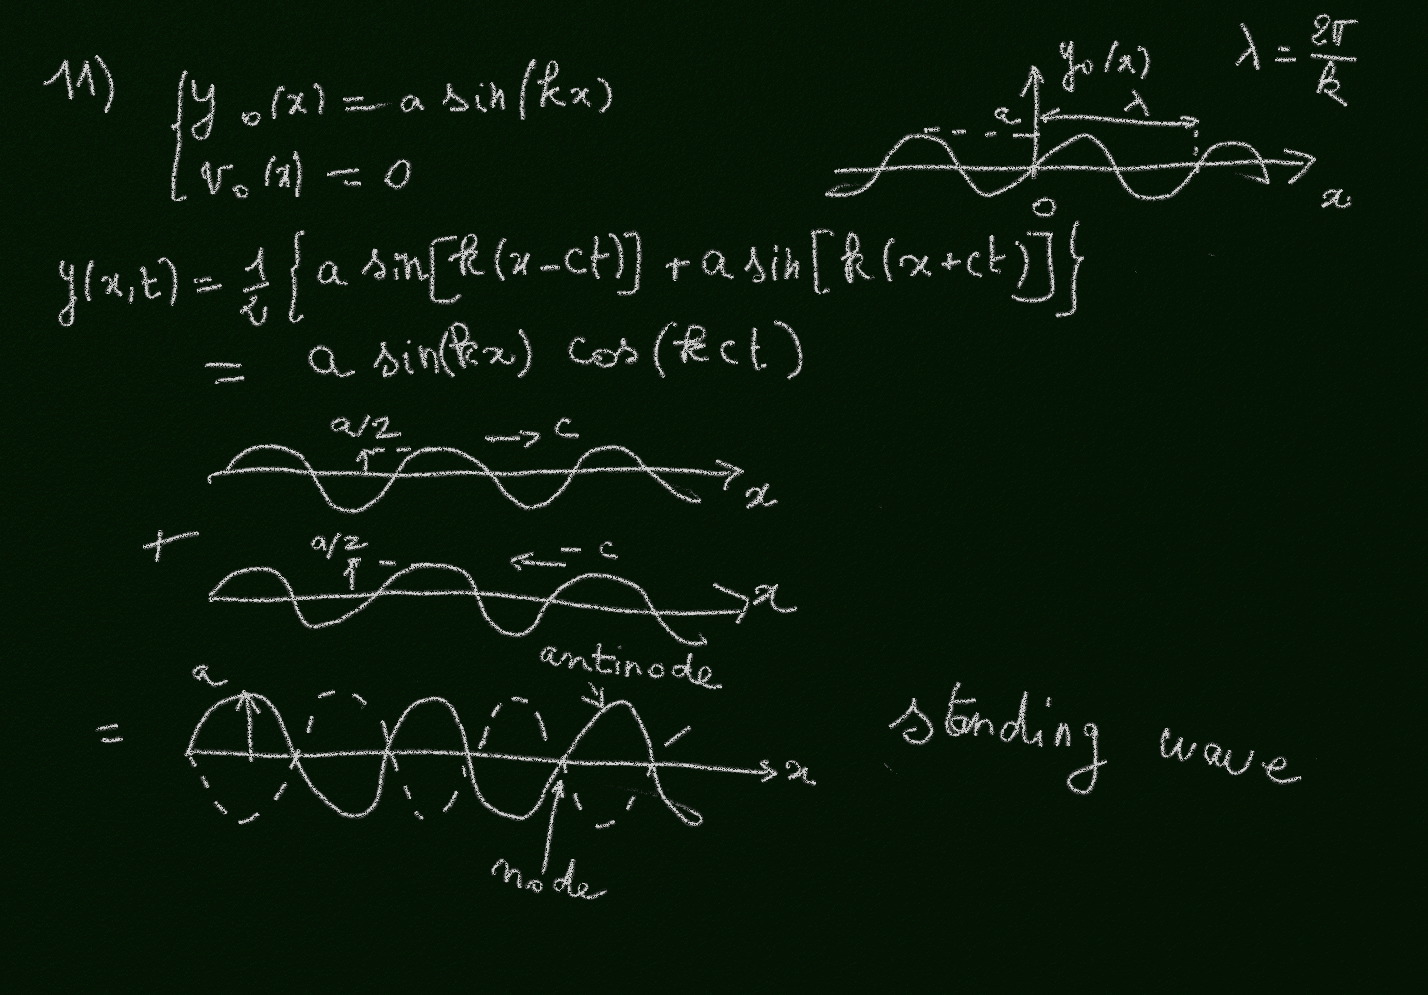 11) { y₀(x) = a sin(kx)
v₀(x) = 0
y₀(x)
λ = 2π/k
a
λ
0
x
y(x,t) = 1/2 { a sin[k(x-ct)] + a sin[k(x+ct)] }
= a sin(kx) cos(kct)
a/2 → c
x
+
a/2 ← -c
x
antinode
a
=
x
standing wave
node